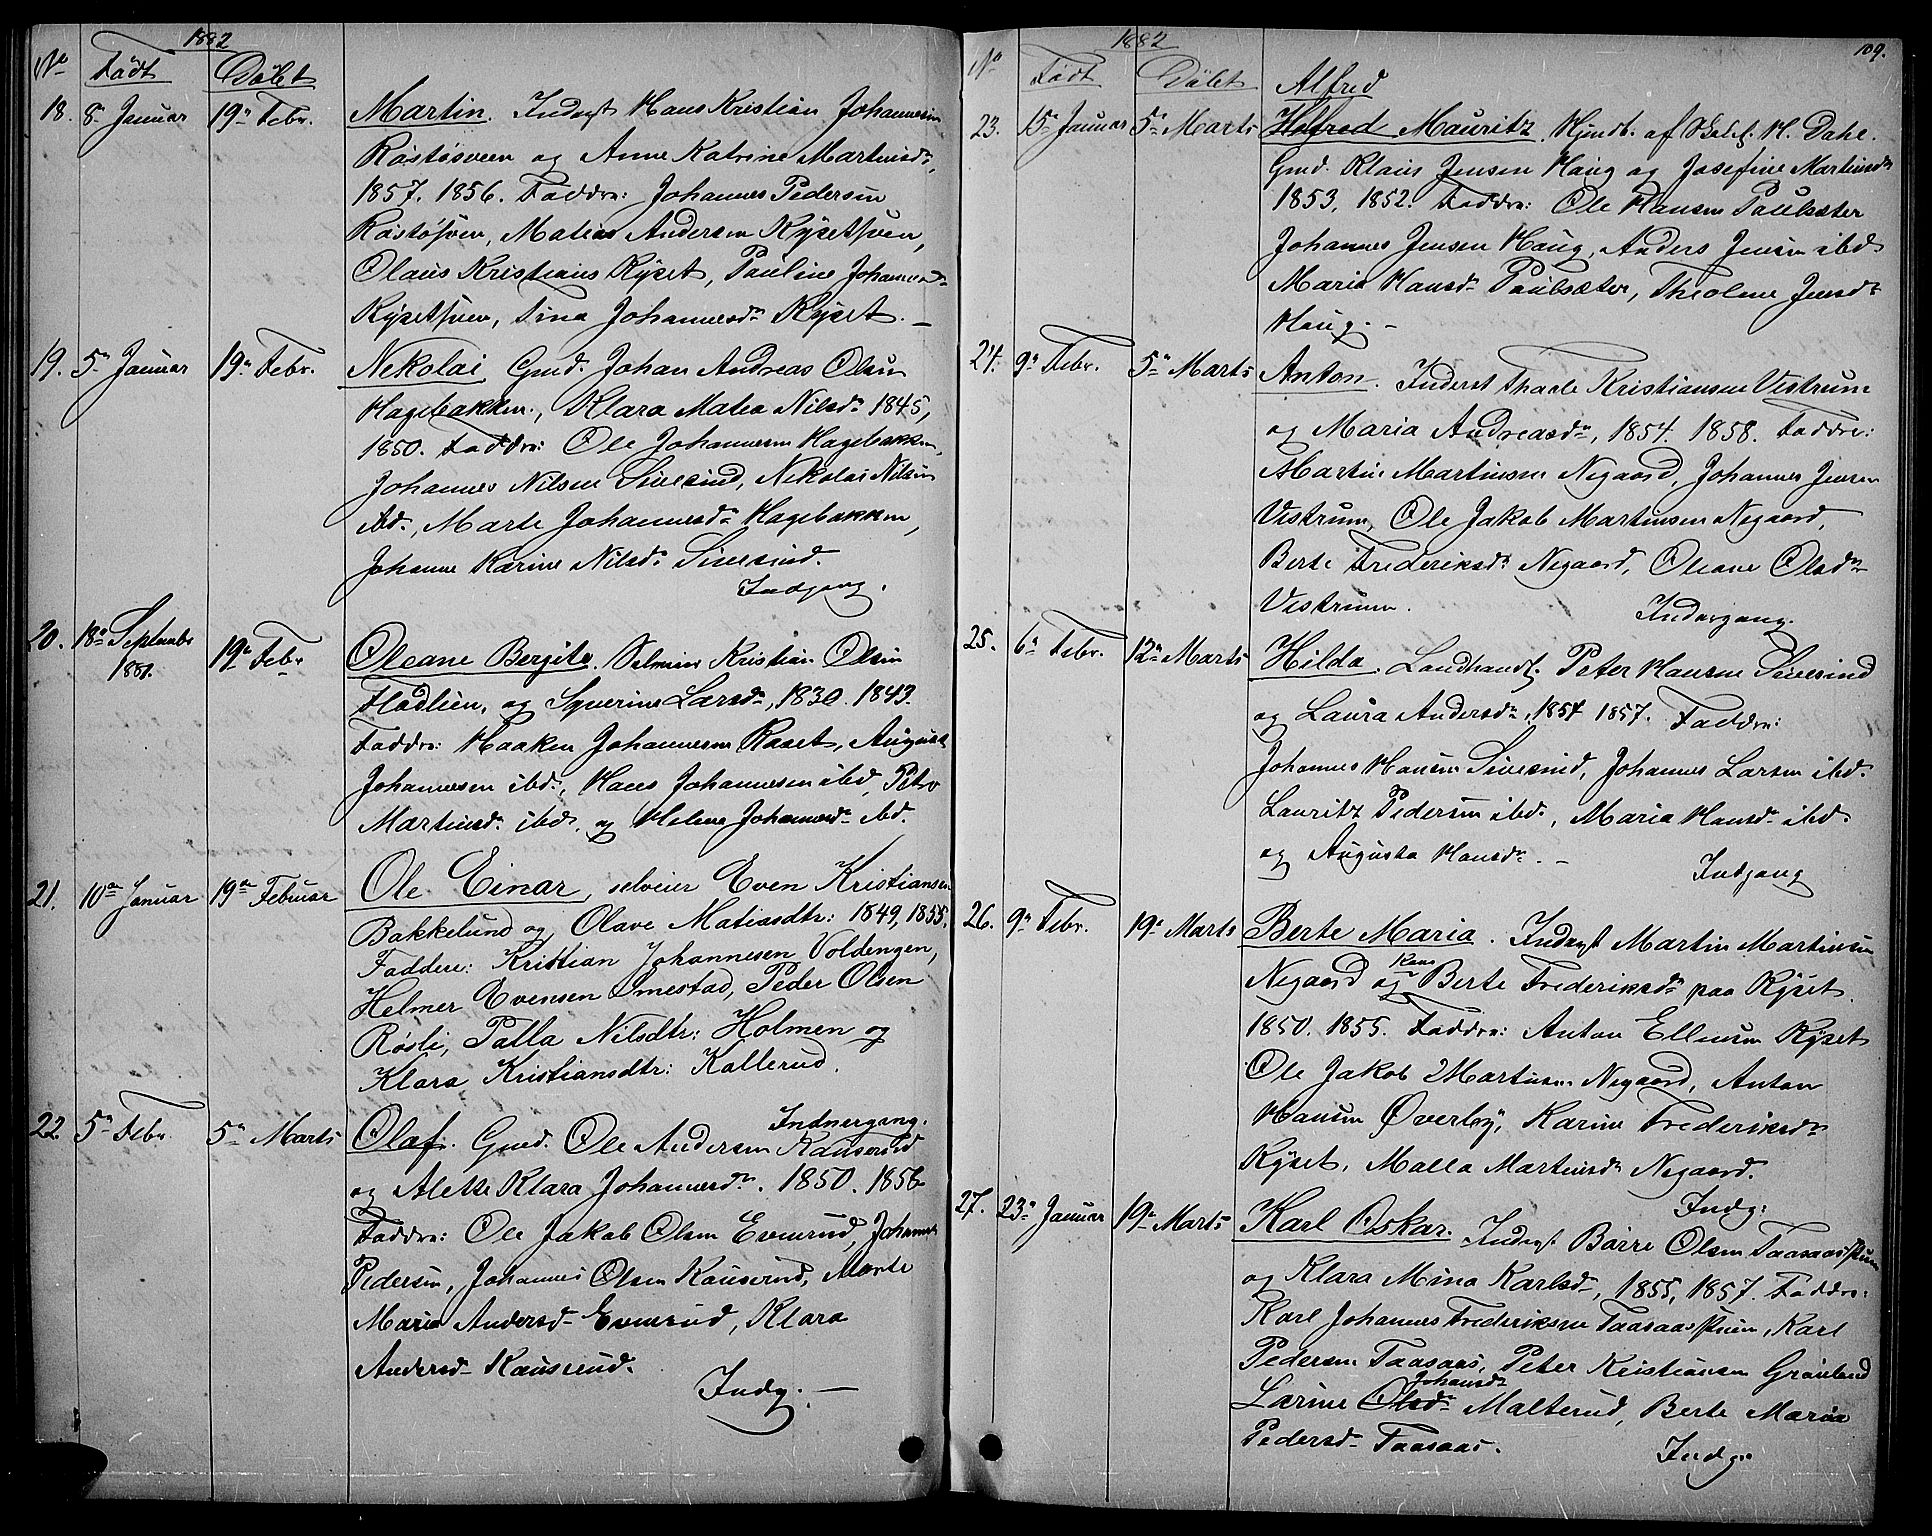 1882
No Født Døbt
18. 8n Januar 19n Febr. Martin. Inderst Hans Kristian Johannesen
Røstøsveen og Anne Katrine Martinsdr.
1857. 1856. Faddre: Johannes Pedersen
Røstøsveen, Matias Andersen Rysetsveen,
Olaus Kristians Ryset, Pauline Johannesdr.
Rysetsveen, Tina Johannesdr. Ryset. —
19. 5n Januar 19n Febr. Nekolai Gmd. Johan Andreas Olsen
Hagebakken, Klara Matea Nilsdr. 1845,
1850. Faddre: Ole Johannesen Hagebakken,
Johannes Nilsen Sivesind, Nekolai Nilsen
ibd., Marte Johannesdr. Hagebakken,
Johanne Karine Nilsdr. Sivesind.
Indgang.
20. 18n September 1881. 19n Febr Oleane Bergite. Selveier Kristian Olsen
Fladlien, og Syverine Larsdr., 1830. 1843.
Faddre: Haaken Johannesen Raaet, August
Johannesen ibd., Hans Johannesen ibd, Petra
Martinsdr. ibd. og Helene Johannesdr. ibd.
21. 10de Januar 19de Februar Ole Einar, selveier Even Kristiansen
Bakkelund og Olave Matiasdtr: 1849, 1855.
Faddere: Kristian Johannesen Voldengen,
Helmer Evensen Smestad, Peder Olsen
Røsli, Palla Nilsdtr: Holmen og
Klara Kristiansdtr: Kallerud.
Indnergang.
22. 5n Febr. 5n Marts Olaf. Gmd. Ole Andersen Kauserud
og Alette Klara Johannesdr. 1850. 1856
Faddre: Ole Jakob Olsen Evenrud, Johannes
Pedersen, Johannes Olsen Kauserud, Marte
Maria Andersd. Evenrud, Klara
Andersd. Kauserud.
Indg. —
1882 109.
No Født Døbt
Alfred
23. 15n Januar 5n Marts Halfred Mauritz. Hjmdt. af H. Dahl.
Gmd. Klaus Jensen Haug og Josefine Martinsdr
1853, 1852. Faddre: Ole Hansen Paulsæter
Johannes Jensen Haug, Anders Jensen ibd
Maria Hansdr. Paulsæter, Theoline Jensdr
Haug. —
24. 9n Febr. 5n Marts Anton. Inderst Tharle Kristiansen Vestrum
og Maria Andreasdr., 1854. 1858. Faddre:
Martin Martinsen Negaard, Johannes Jensen
Vestrum, Ole Jakob Martinsen Negaard,
Berte Frederiksdr. Negaard, Oleane Olsdr.
Vestrum.
Indergang.
25. 6n Febr. 12n Marts Hilda. Landhandl. Peter Hansen Sivesind
og Laura Andersdr., 1854 1857. Faddre:
Johannes Hansen Sivesind, Johannes Larsen ibd.
Lauritz Pedersen ibd., Maria Hansdr. ibd.
og Augusta Hansdr. —
Indgang
26. 9n Febr. 19n Marts Berte Maria. Inderst Martin Martinsen
Negaard og Berte Frederiksdr. paa Ryset.
1850. 1855. Faddre: Anton Ellensen Ryset
Ole Jakob Martinsen Negaard, Anton
Hansen Øverby, Karine Frederiksdr
Ryset, Malla Martinsdr. Negaard.
Indg:
27. 23n Januar 19n Marts Karl Oskar. Inderst Børre Olsen Taasaasstuen
og Klara Mina Karlsdr., 1855, 1857. Faddre:
Karl Johannes Frederiksen Taasaasstuen, Karl
Pedersen Taasaas, Peter Kristiansen Grønland
Johansdr
Larine Olsdr. Malterud, Berte Maria
Pedersdr. Taasaas.
Indg.